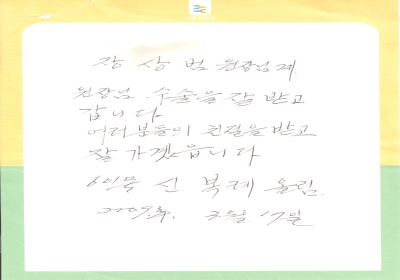 장 상 범 원장님께.
원장님 수술을 잘 받고
갑니다
여러분들의 친절을 받고
잘 가겠읍니다
신 복례 올림.
2009年. 3월 17일